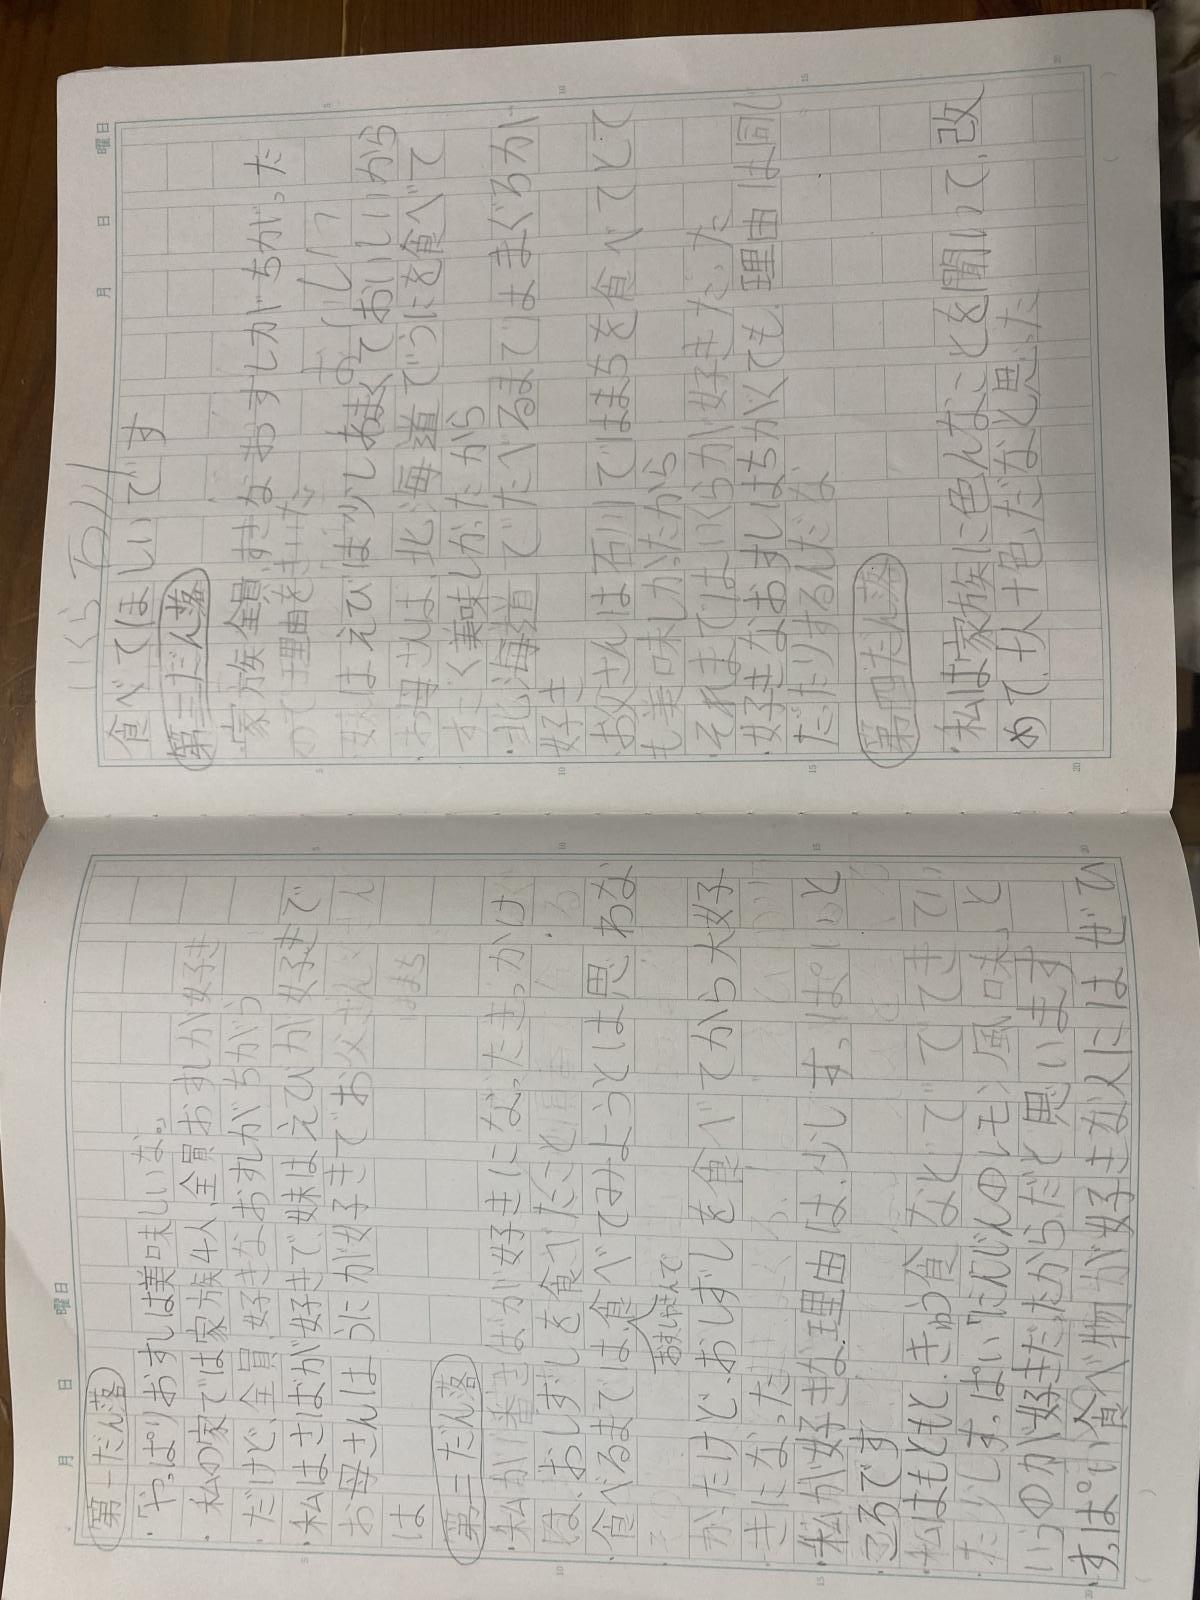 第一だん落
・「やっぱりおすしは美味しいな。」
・私の家では家族4人、全員おすしが好き
だけど、全員、好きなおすしがちがう
・私はさばが好きで、妹はえびが好きで
お母さんはうにが好きでお父さん
は はまち
第二だん落
・私が川番さばが好きになったきっかけ
は、おしずしを食べたこと
食べるまでは食べてみようとは思わな
かったけど、おしずしを食べてから大好
お弁当で
きになった
・私が好きな理由は、少しすっぱいと
ころです
・私はもともと、きゅう食などででてきてい
た少しすっぱい「にんじんのレモン風味」と
いうのが好きだったからだと思います
・すっぱい食べ物が好きな人にはぜひ
食べてほしいです
いくら 石川
第三だん落
・家族全員、すきなおすしがちがった
ので理由をきいた
妹はえびは少しあまくておいしいから
お母さんは、北海道でうにを食べて
すごく美味しかったから
・北海道でたべるまではまぐろが
好き
お父さんは石川ではまちを食べてとて
も美味しかったから
・それまではいくらが好きだった
・好きなおすしはちがくても、理由は同じ
だったりするんだな
第四だん落
・私は家族に色んなことを聞いて、改
めて、十人十色だなと思った
月 日 曜日
月 日 曜日
5
10
15
20
5
10
15
20
5
10
15
20
5
10
15
20